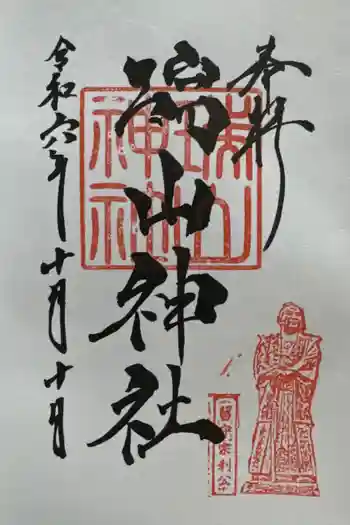 奉拝
瑞山神社
令和六年十月十日
瑞山神社